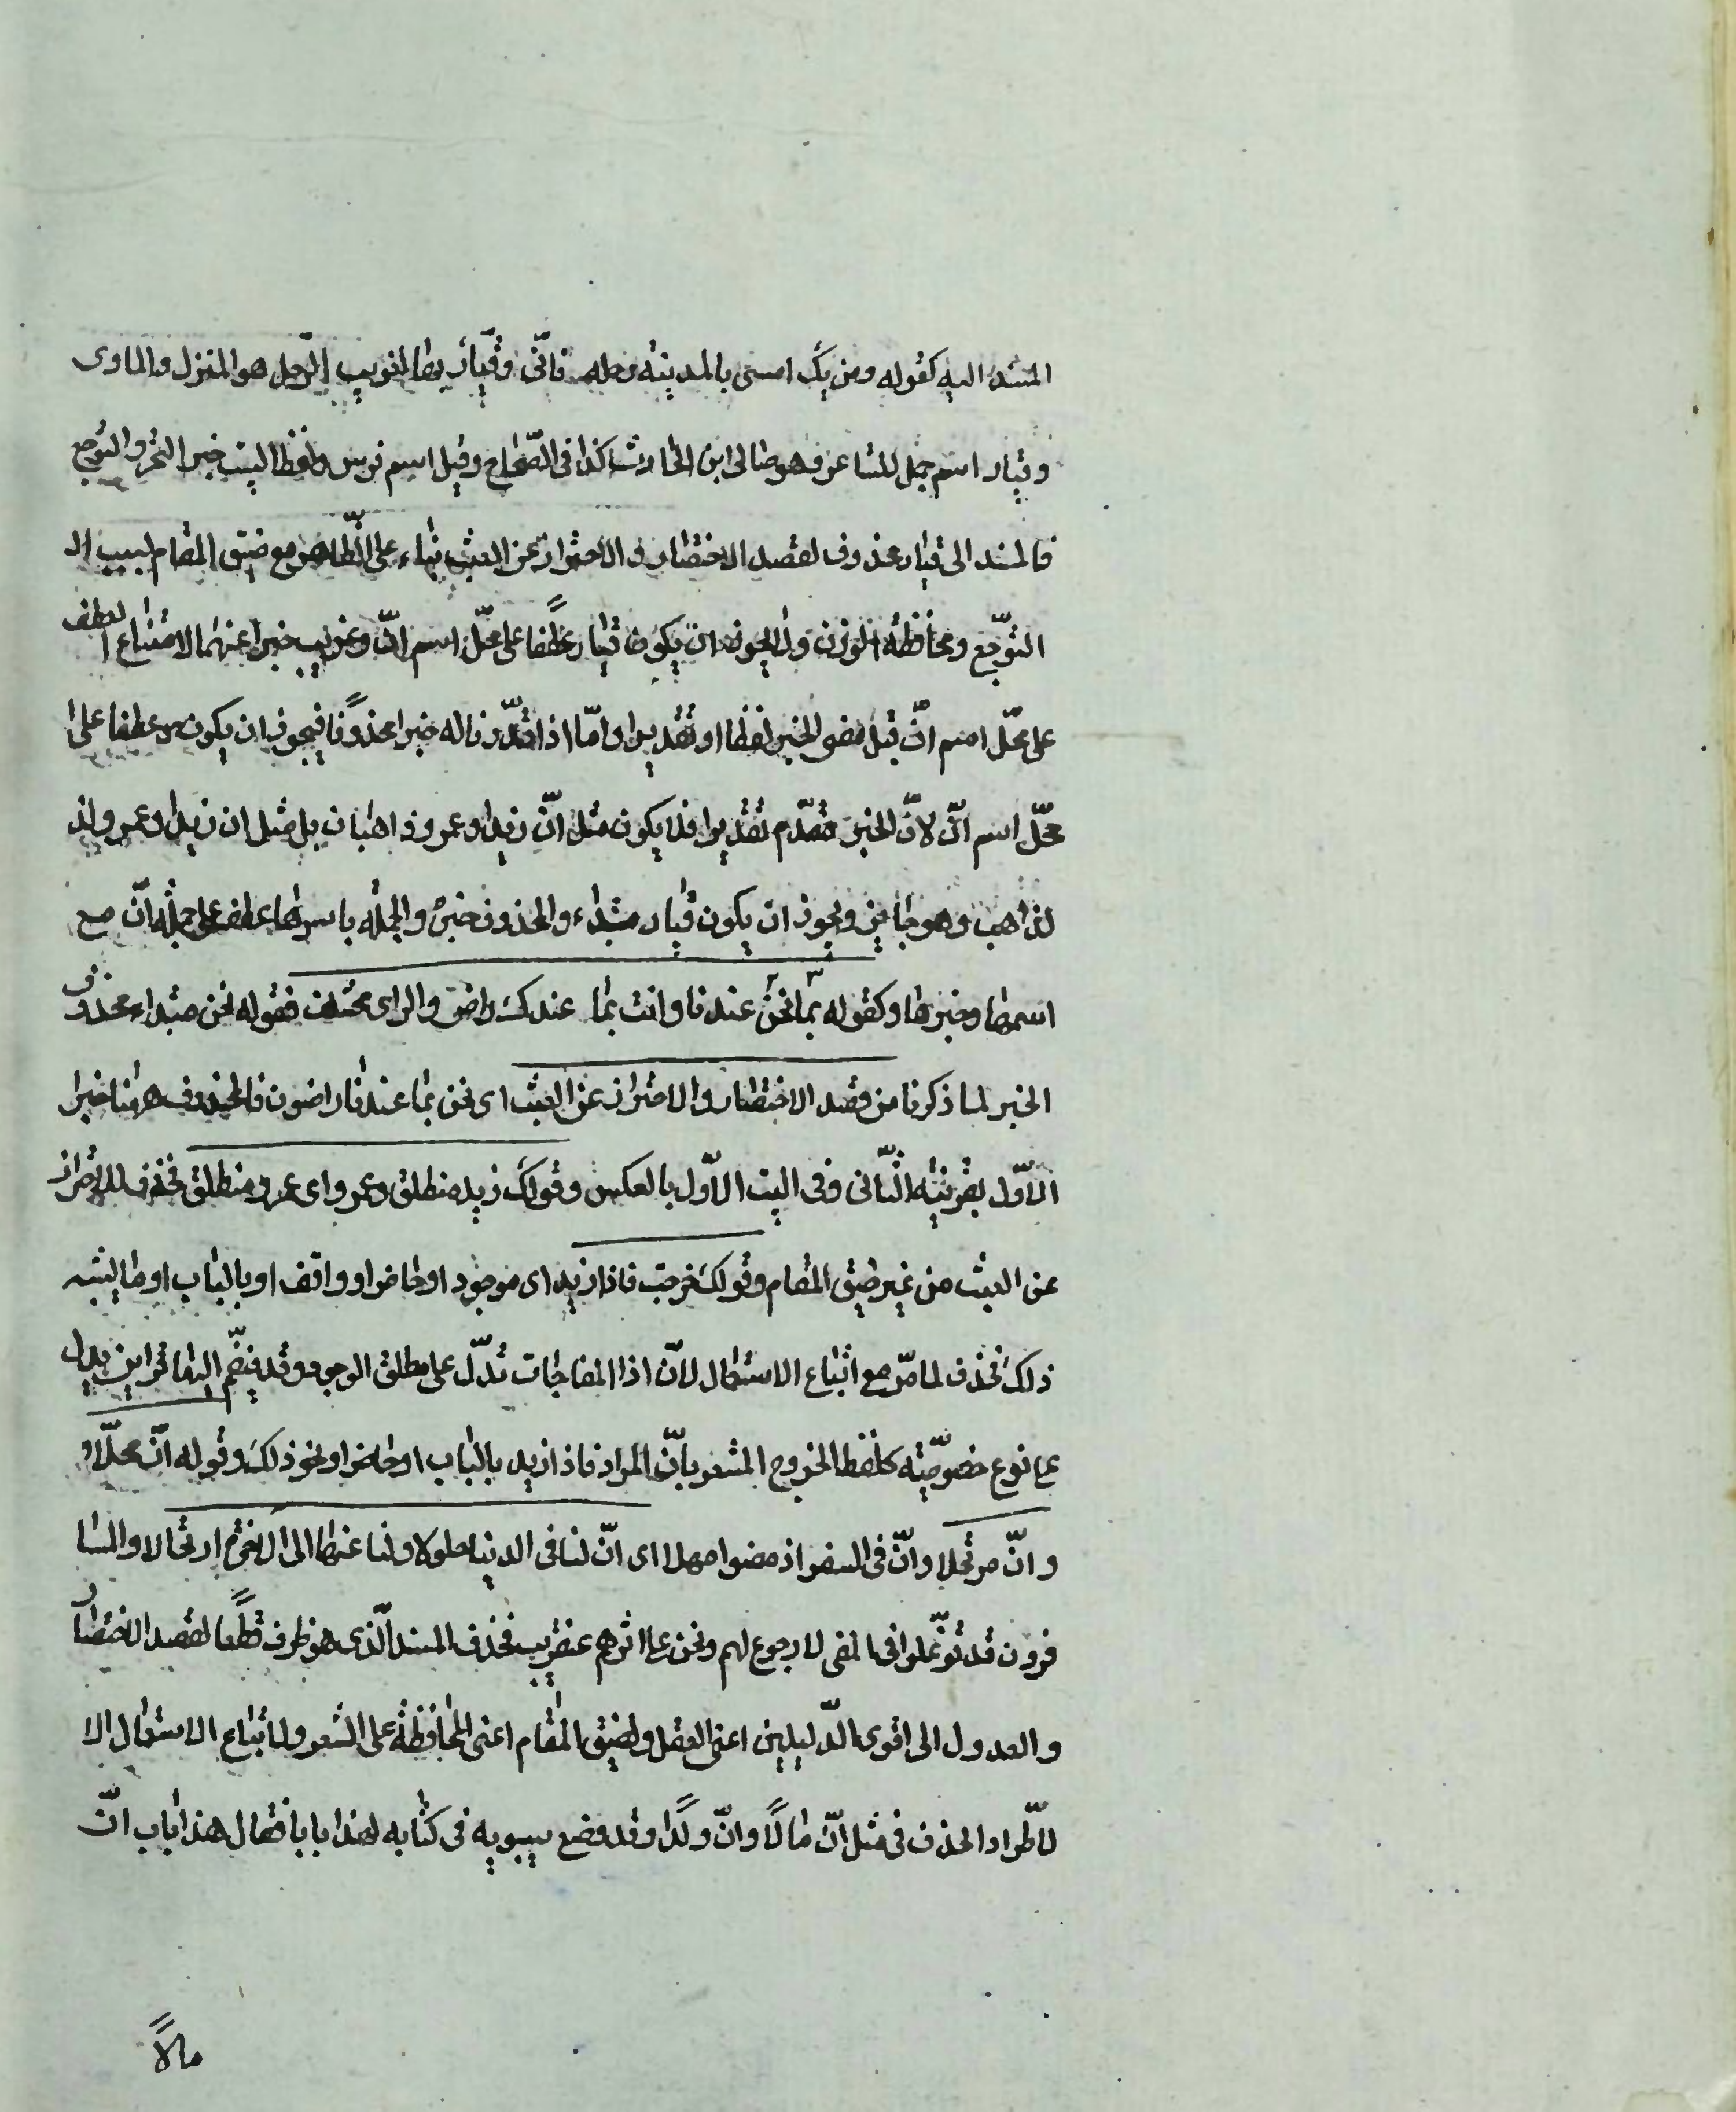 المسند اليه كقوله ومن يك امسى بالمدينة رحله فانّى وقيّارٌ بها لغريب الرّحل هو المنزل والماوى
وقيار اسم جمل للشاعر وهو ضابى ابن الحارث كذا فى الصّحاح وقيل اسم فرس ولفظ البيت خبر التحسر والتوجع
فالمسند الى قيار محذوف لقصد الاختصار والاحتراز عن العبث بناء على الظّاهر مع ضيق المقام بسبب ال
التوجّع ومحافظة الوزن ولا يجوز ان يكون قيار عطفًا على محلّ اسم انّ وغريب خبرا عنهما لامتناع العطف
على محلّ اسم انّ قبل مضى الخبر لفظا او تقديرا وامّا اذا قدّرنا له خبرا محذوفًا فيجوز ان يكون عطفا على
محلّ اسم انّ لانّ الخبر مقدّم تقديرا فلا يكون مثل انّ زيدا وعمرو ذاهبان بل مثل ان زيدا وعمرو لذ
لذاهب وهو جايز ويجوز ان يكون قيار مبتداء والمحذوف خبره والجملة باسرها عطف على جملة انّ مع
اسمها وخبرها وكقوله نحن بما عندنا وانت بما عندك راض والراى مختلف فقوله نحن مبتداء محذوف
الخبر لما ذكرنا من قصد الاختصار والاحتراز عن العبث اى نحن بما عندنا راضون فالمحذوف ههنا خبر ا
الاوّل بقرينة الثّانى وفى البيت الاوّل بالعكس وقولك زيد منطلق وعمرو اى عمرو منطلق فحذف للاحتراز
عن العبث من غير ضيق المقام وقولك خرجت فاذا زيد اى موجود او حاضر او واقف او بالباب او ما يشبه
ذلك فحذف لما مرّ مع اتباع الاستعمال لانّ اذا المفاجات تدلّ على مطلق الوجود وقد ينضّم اليها قراين يدل
على نوع خصوصيّة كلفظ الخروج المشعر بانّ المراد فاذا زيد بالباب او حاضر او نحو ذلك وقوله انّ محلّا و
وانّ مرتحلا وانّ فى السفر اذ مضوا مهلا اى انّ لنا فى الدنيا حلولا ولنا عنها الى الاخرة ارتحالا والمسا
فرون قد توغّلوا فى المضى لا رجوع لهم ونحن على اثرهم عنقريب فحذف المسند الّذى هو ظرف قطعًا لقصد الاختصار
والعدول الى اقوى الدّليلين اعنى العقل ولضيق المقام اعنى المحافظة على الشعر ولاتباع الاستعمال الا
لاطّراد الحذف فى مثل انّ مالًا وانّ ولدًا وقد وضع سيبويه فى كتابه لهذا بابا فقال هذا باب انّ
مالاً